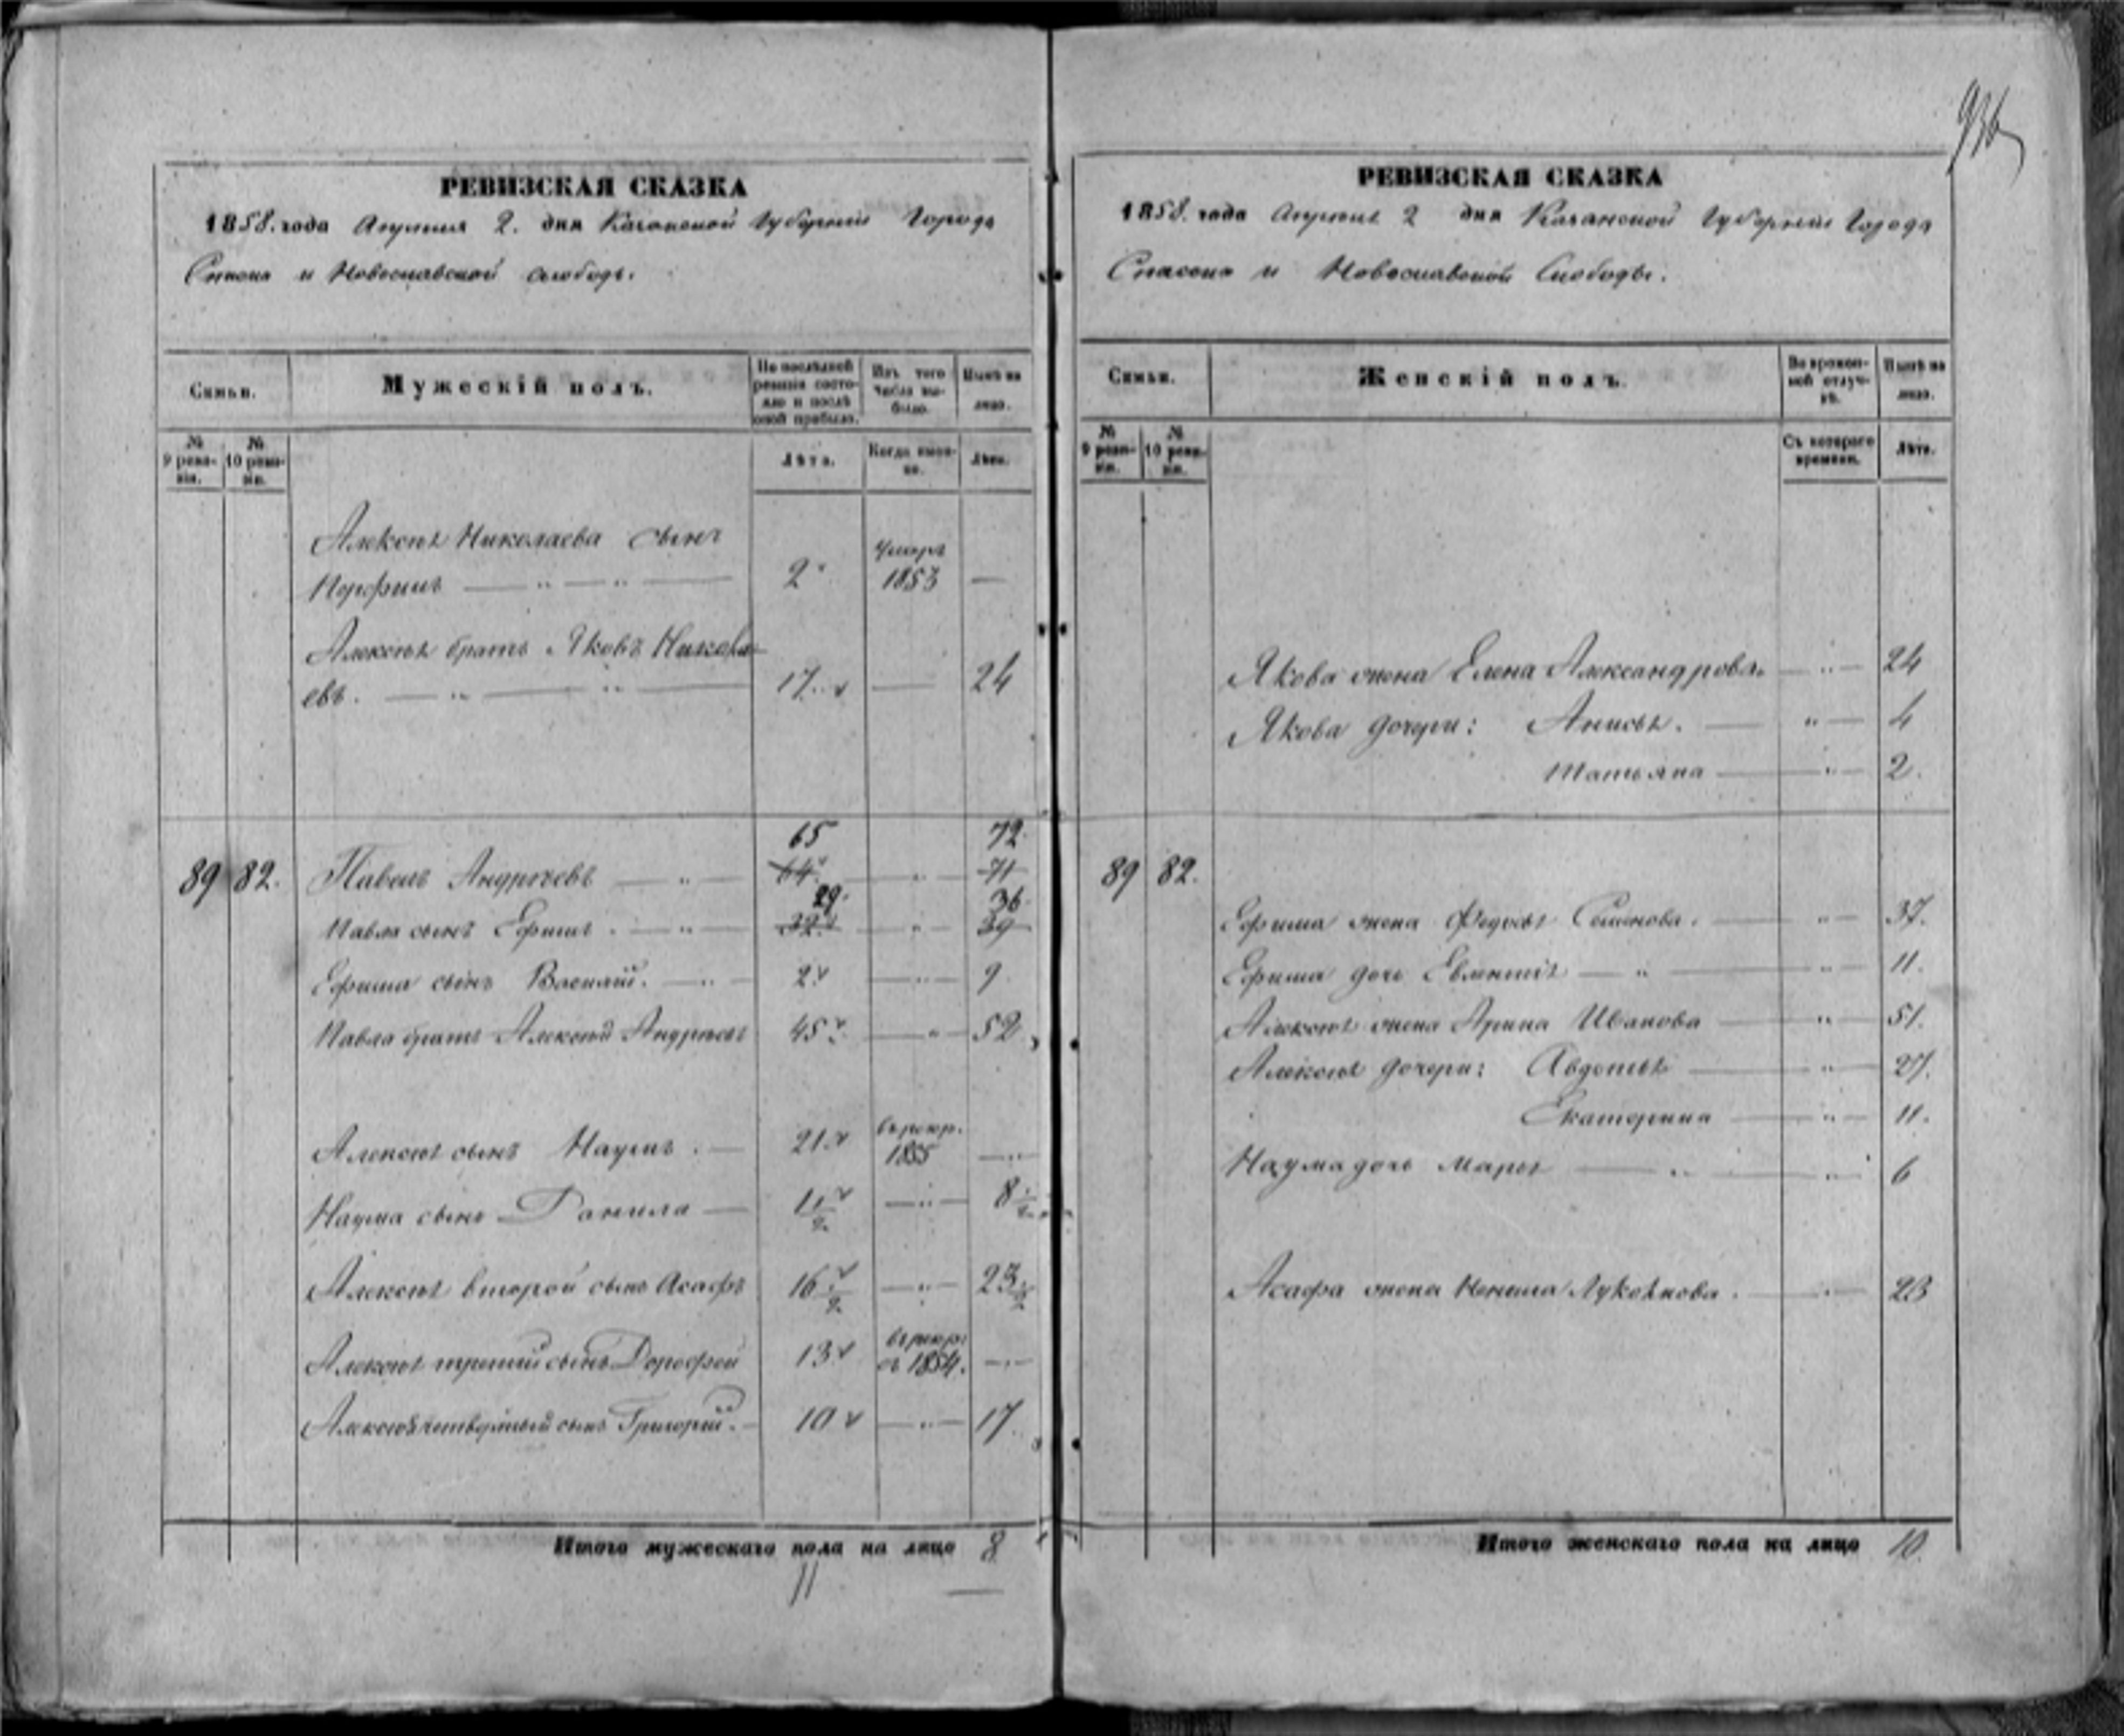 936
РЕВИЗСКАЯ СКАЗКА
1858. года Апреля 2. дня Казанской Губернии Города
Спаска и Новоспавской слободъ.
Семьи.
Мужескій полъ.
По послѣдней ревизіи состояло и послѣ оной прибыло.
Изъ того числа выбыло.
Нынѣ на лицо.
№ 9 ревизіи.
№ 10 ревизіи.
Лѣта.
Когда именно.
Лѣта.
Алексѣя Николаева сынъ
Порфилъ — " — " — 2 умеръ 1853 —
Алексѣя братъ Яковъ Никола-
евъ. — " — " — 17 — 24
65 72
89 82. Павелъ Андреевъ — " — 64 — " — 71
29. 36
Павла сынъ Ефимъ. — " — 32 — " — 39
Ефима сынъ Василій. — " — 2 — " — 9
Павла братъ Алексѣй Андреевъ 45 — " — 52
Алексѣя сынъ Наумъ. — 21 въ рекр. 1855 — " —
Наума сынъ Данила — 1 1/2 — " — 8 1/2
Алексѣя второй сынъ Асафъ 16 1/2 — " — 23 1/2
Алексѣя третій сынъ Дорофей 13 въ рекр. въ 1854. — " —
Алексѣя четвертый сынъ Григорій. — 10 — " — 17
Итого мужескаго пола на лицо 8
11
РЕВИЗСКАЯ СКАЗКА
1858. года Апреля 2 дня Казанской Губерніи Города
Спаска и Новоспавской Слободы.
Семьи.
Женскій полъ.
Во временной отлучкѣ.
Нынѣ на лицо.
№ 9 ревизіи.
№ 10 ревизіи.
Съ котораго времени.
Лѣта.
Якова жена Елена Александрова — " — 24
Якова дочери: Анисья. — " — 4
Татьяна — " — 2.
89 82.
Ефима жена Федосья Семенова. — " — 37.
Ефима дочь — " — " — 11.
Алексѣя жена Арина Иванова — " — 51.
Алексѣя дочери: Авдотья — " — 27.
Екатерина — " — 11.
Наума дочь Марья — " — " — 6
Асафа жена Лукоянова. — " — 23
Итого женскаго пола на лицо 10.